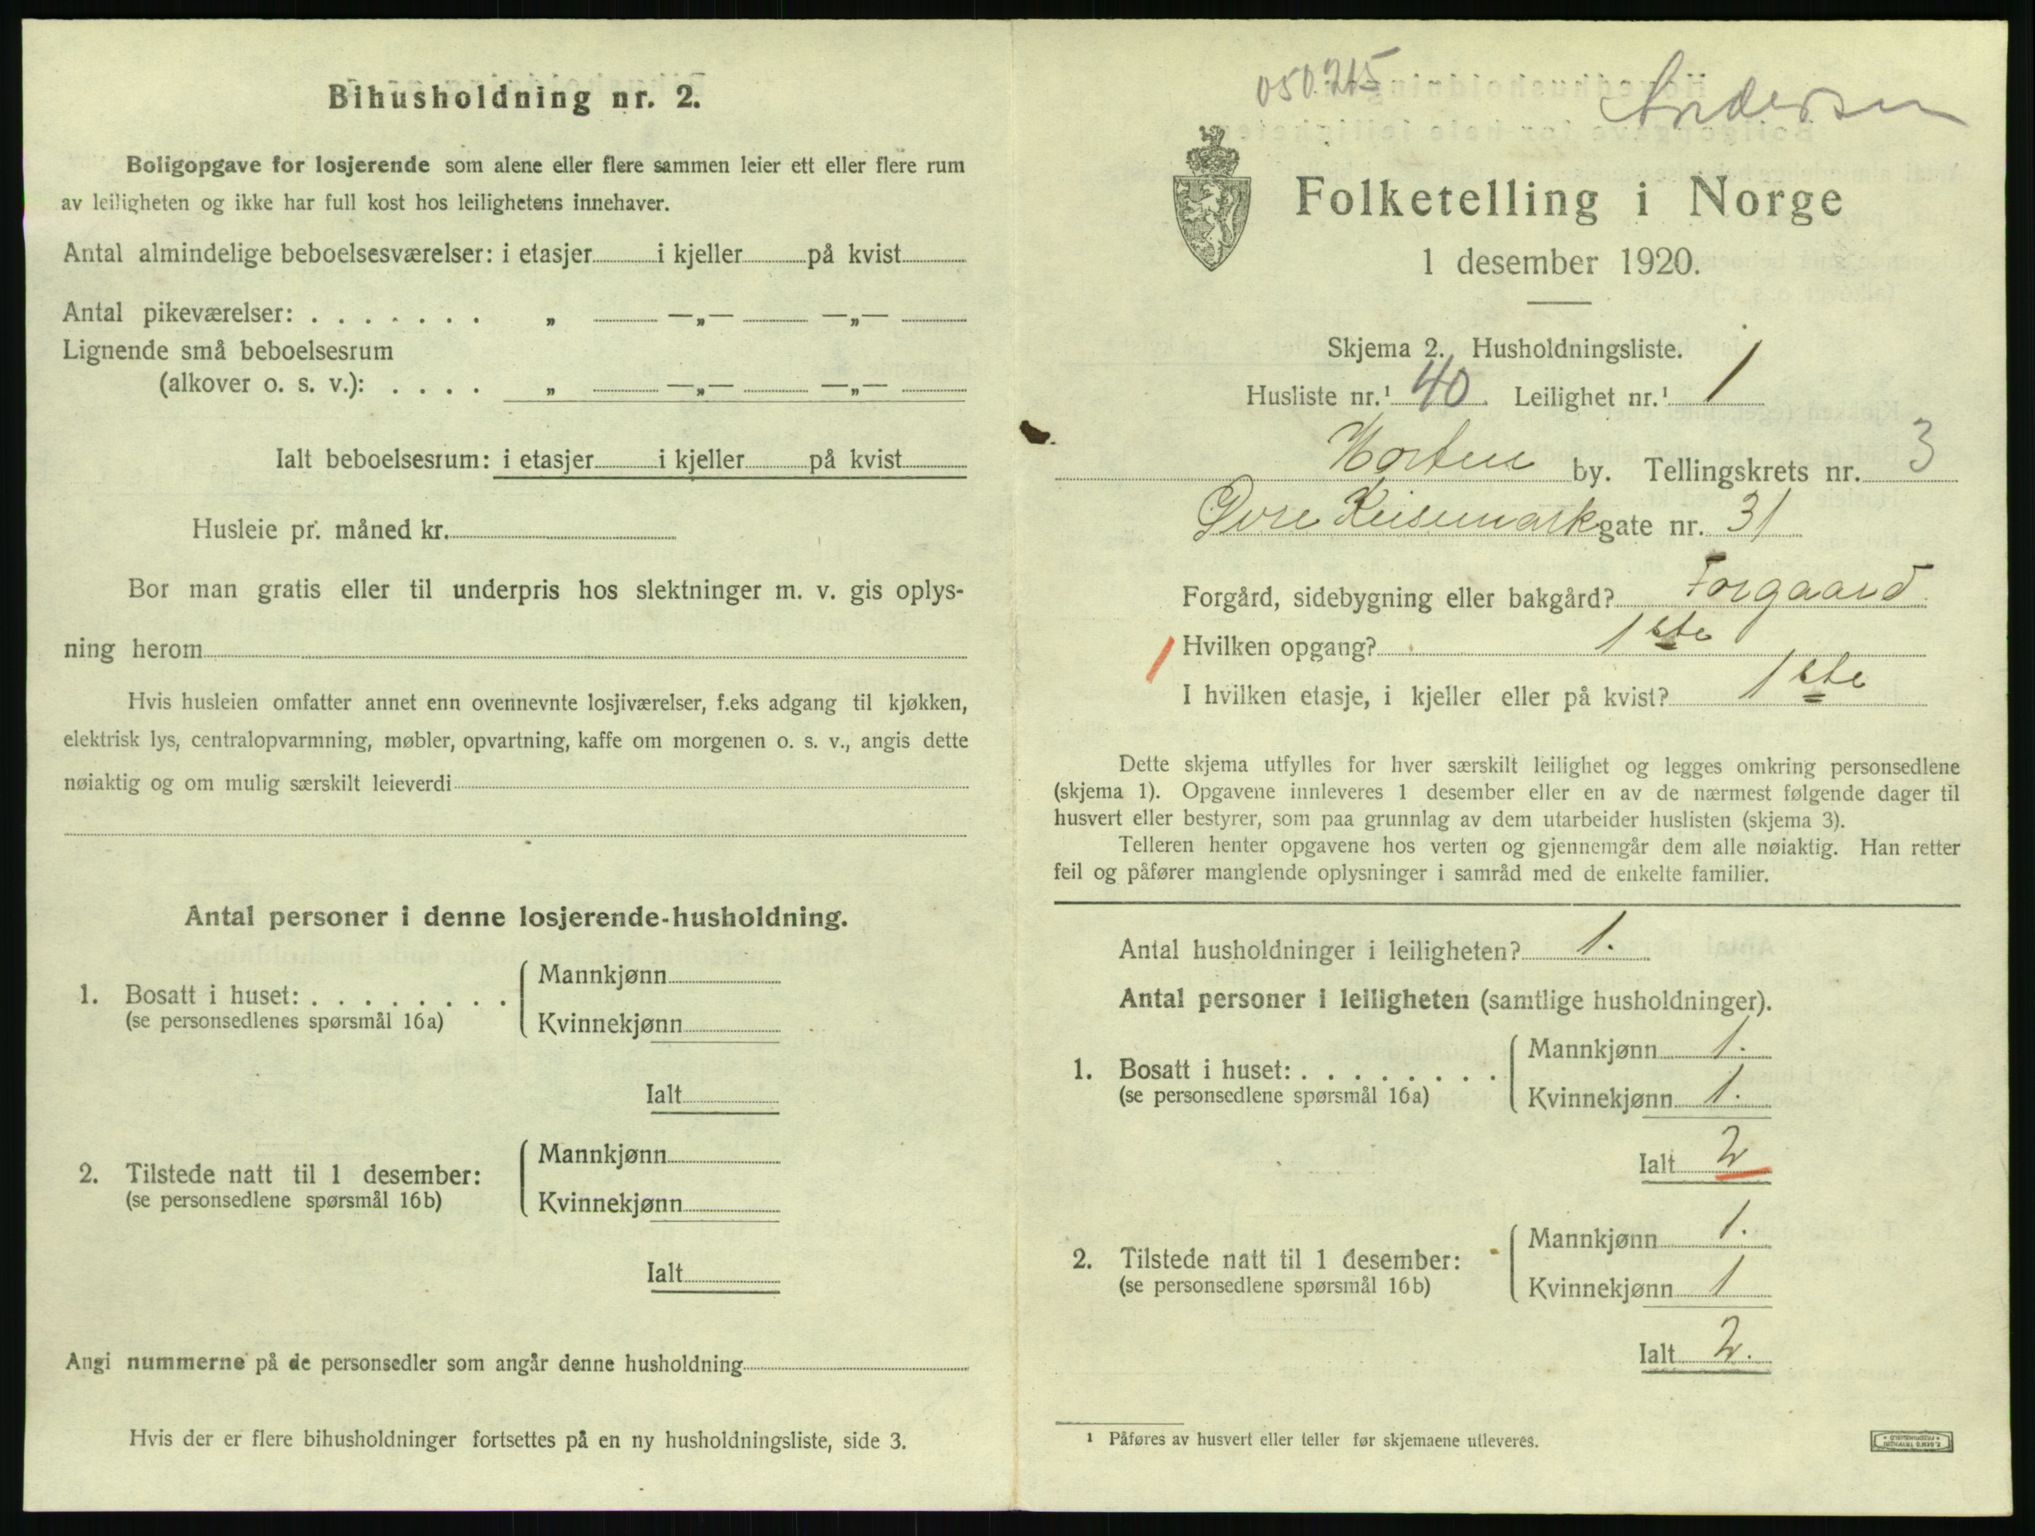 Bihusholdning nr. 2.
Boligopgave for losjerende som alene eller flere sammen leier ett eller flere rum
av leiligheten og ikke har full kost hos leilighetens innehaver.
Antal almindelige beboelsesværelser: i etasjer i kjeller på kvist
Antal pikeværelser: . . . . . . . „ —„— —„—
Lignende små beboelsesrum
(alkover o. s. v.): . . . . „ —„— —„—
Ialt beboelsesrum: i etasjer i kjeller på kvist
Husleie pr. måned kr.
Bor man gratis eller til underpris hos slektninger m. v. gis oplys-
ning herom
Hvis husleien omfatter annet enn ovennevnte losjiværelser, f.eks adgang til kjøkken,
elektrisk lys, centralopvarmning, møbler, opvartning, kaffe om morgenen o. s. v., angis dette
nøiaktig og om mulig særskilt leieverdi
Antal personer i denne losjerende-husholdning.
1. Bosatt i huset: . . . . . . . .
(se personsedlenes spørsmål 16a)
Mannkjønn
Kvinnekjønn
Ialt
2. Tilstede natt til 1 desember:
(se personsedlene spørsmål 16b)
Mannkjønn
Kvinnekjønn
Ialt
Angi nummerne på de personsedler som angår denne husholdning
Hvis der er flere bihusholdninger fortsettes på en ny husholdningsliste, side 3.
050215
Andersen
Folketelling i Norge
1 desember 1920.
Skjema 2. Husholdningsliste.
Husliste nr.¹ 40 Leilighet nr.¹ 1
Horten by. Tellingskrets nr. 3
Øvre Keisemarkgate nr. 31
Forgård, sidebygning eller bakgård? Forgaard
Hvilken opgang? 1ste
I hvilken etasje, i kjeller eller på kvist? 1ste
Dette skjema utfylles for hver særskilt leilighet og legges omkring personsedlene
(skjema 1). Opgavene innleveres 1 desember eller en av de nærmest følgende dager til
husvert eller bestyrer, som paa grunnlag av dem utarbeider huslisten (skjema 3).
Telleren henter opgavene hos verten og gjennemgår dem alle nøiaktig. Han retter
feil og påfører manglende oplysninger i samråd med de enkelte familier.
Antal husholdninger i leiligheten? 1.
Antal personer i leiligheten (samtlige husholdninger).
1. Bosatt i huset: . . . . . . . .
(se personsedlene spørsmål 16a)
Mannkjønn 1.
Kvinnekjønn 1.
Ialt 2
2. Tilstede natt til 1 desember:
(se personsedlene spørsmål 16b)
Mannkjønn 1.
Kvinnekjønn 1
Ialt 2.
¹ Påføres av husvert eller teller før skjemaene utleveres.